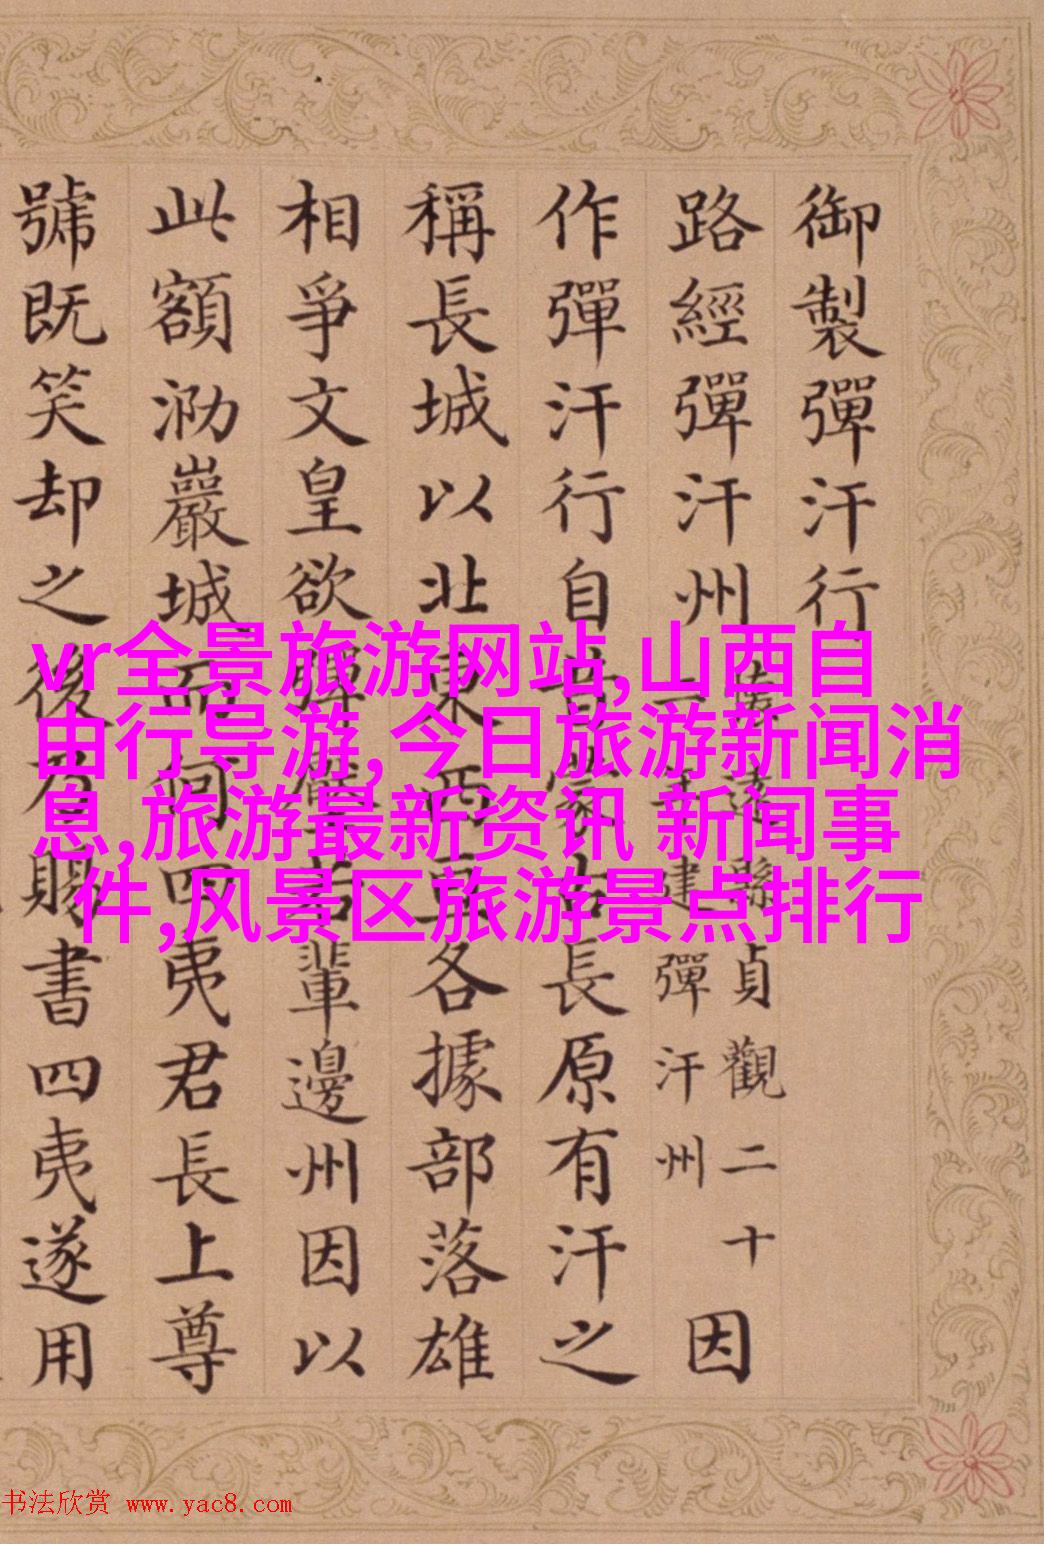 御製彈汗行
路經彈汗州
遠縣貞觀二十
建彈汗州
因
作彈汗行自昔蒙古長原有汗之
稱長城以北東西各據部落雄
相爭文皇欲彈壓若輩邊州因以
此額泐巖城而四夷君長上尊
號既笑却之後乃賜書四夷遂用
vr全景旅游网站,山西自
由行导游, 今日旅游新闻消
息,旅游最新资讯 新闻事
件,风景区旅游景点排行
书法欣赏 www.yac8.com